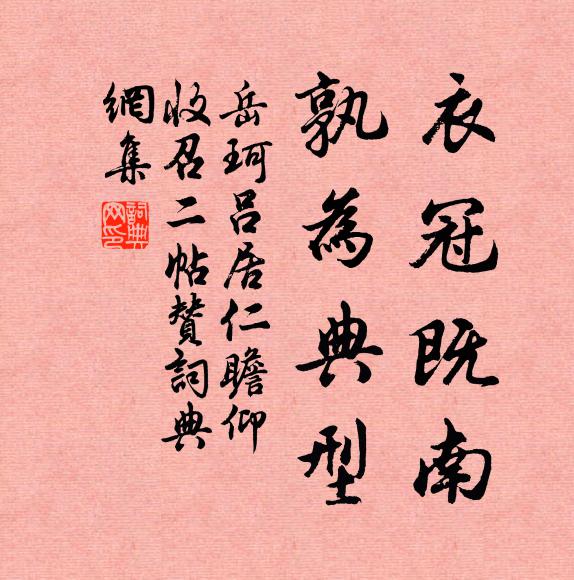 衣冠既南
孰為典型
岳珂吕居仁瞻仰
收召二帖贊詞典
網集
詞典
网印